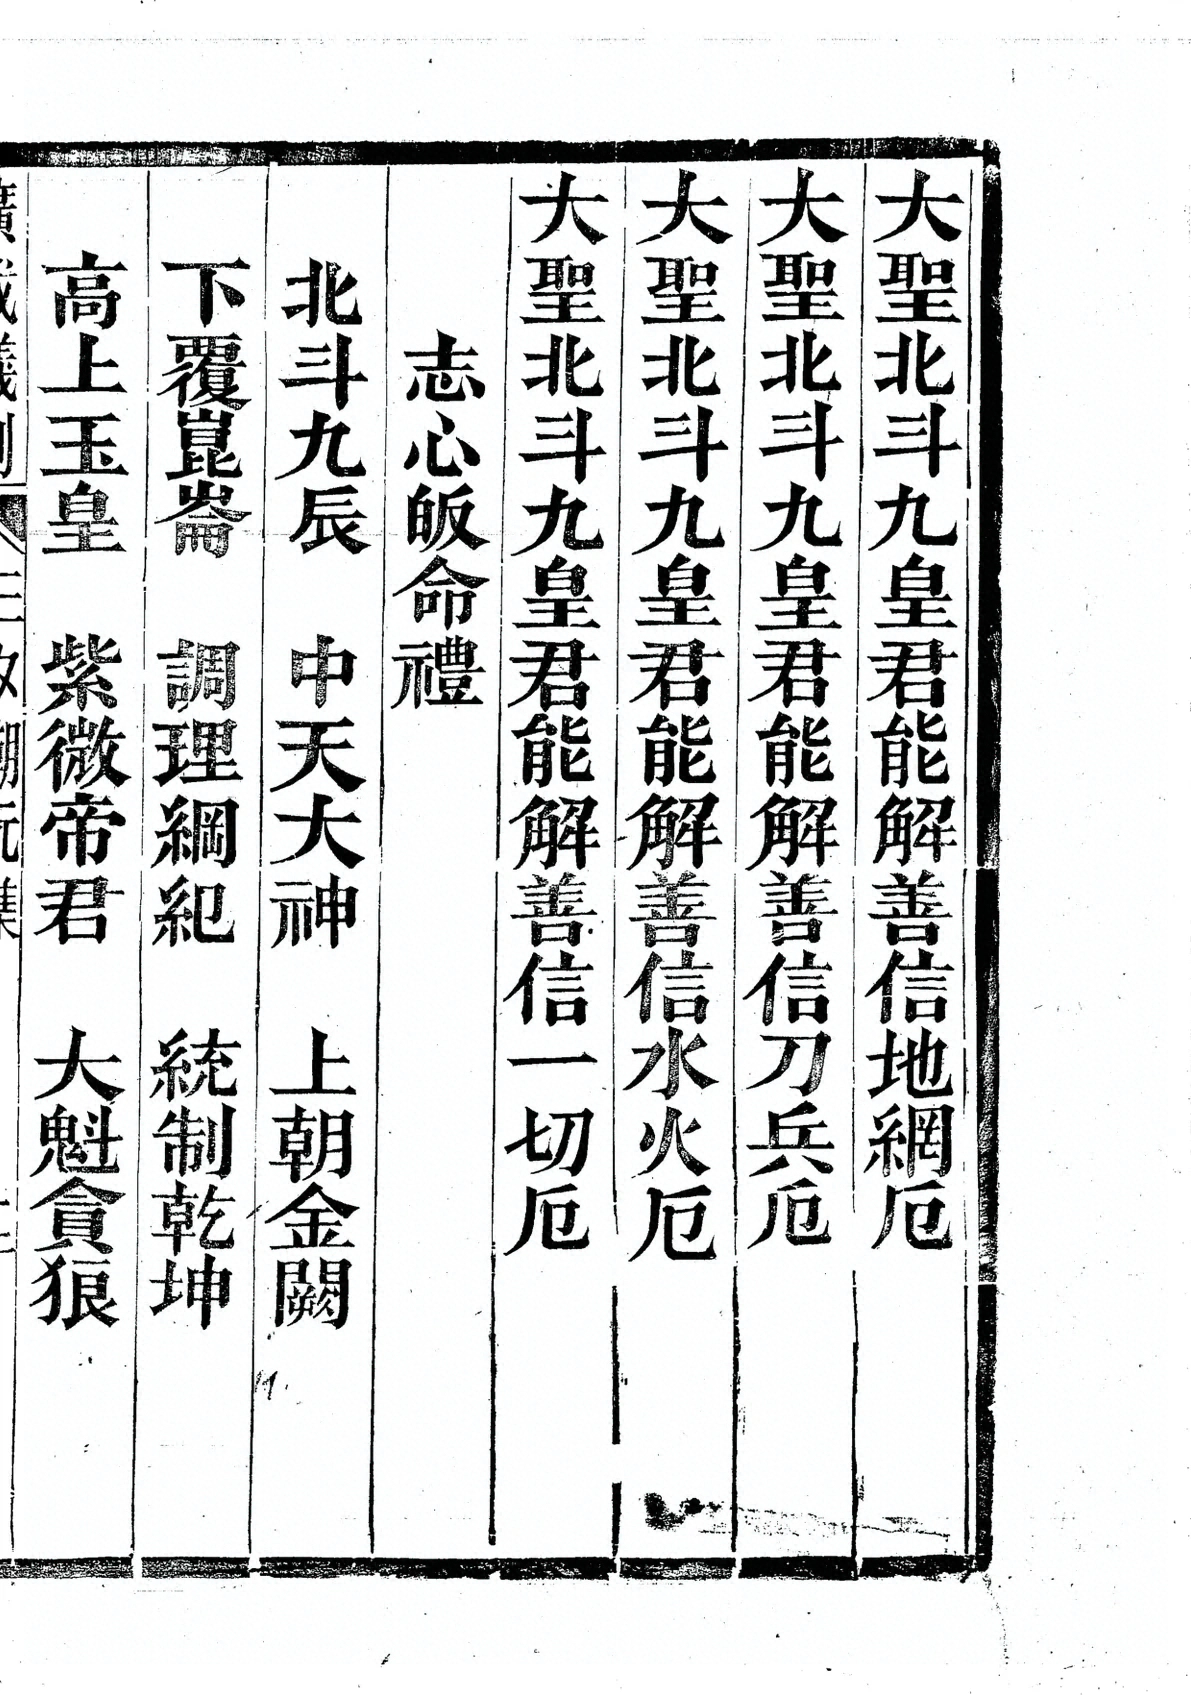 大聖北斗九皇君能解善信地網厄
大聖北斗九皇君能解善信刀兵厄
大聖北斗九皇君能解善信水火厄
大聖北斗九皇君能解善信一切厄
志心皈命禮
北斗九辰　中天大神　上朝金闕
下覆崑崙　調理綱紀　統制乾坤
高上玉皇　紫微帝君　大魁貪狼